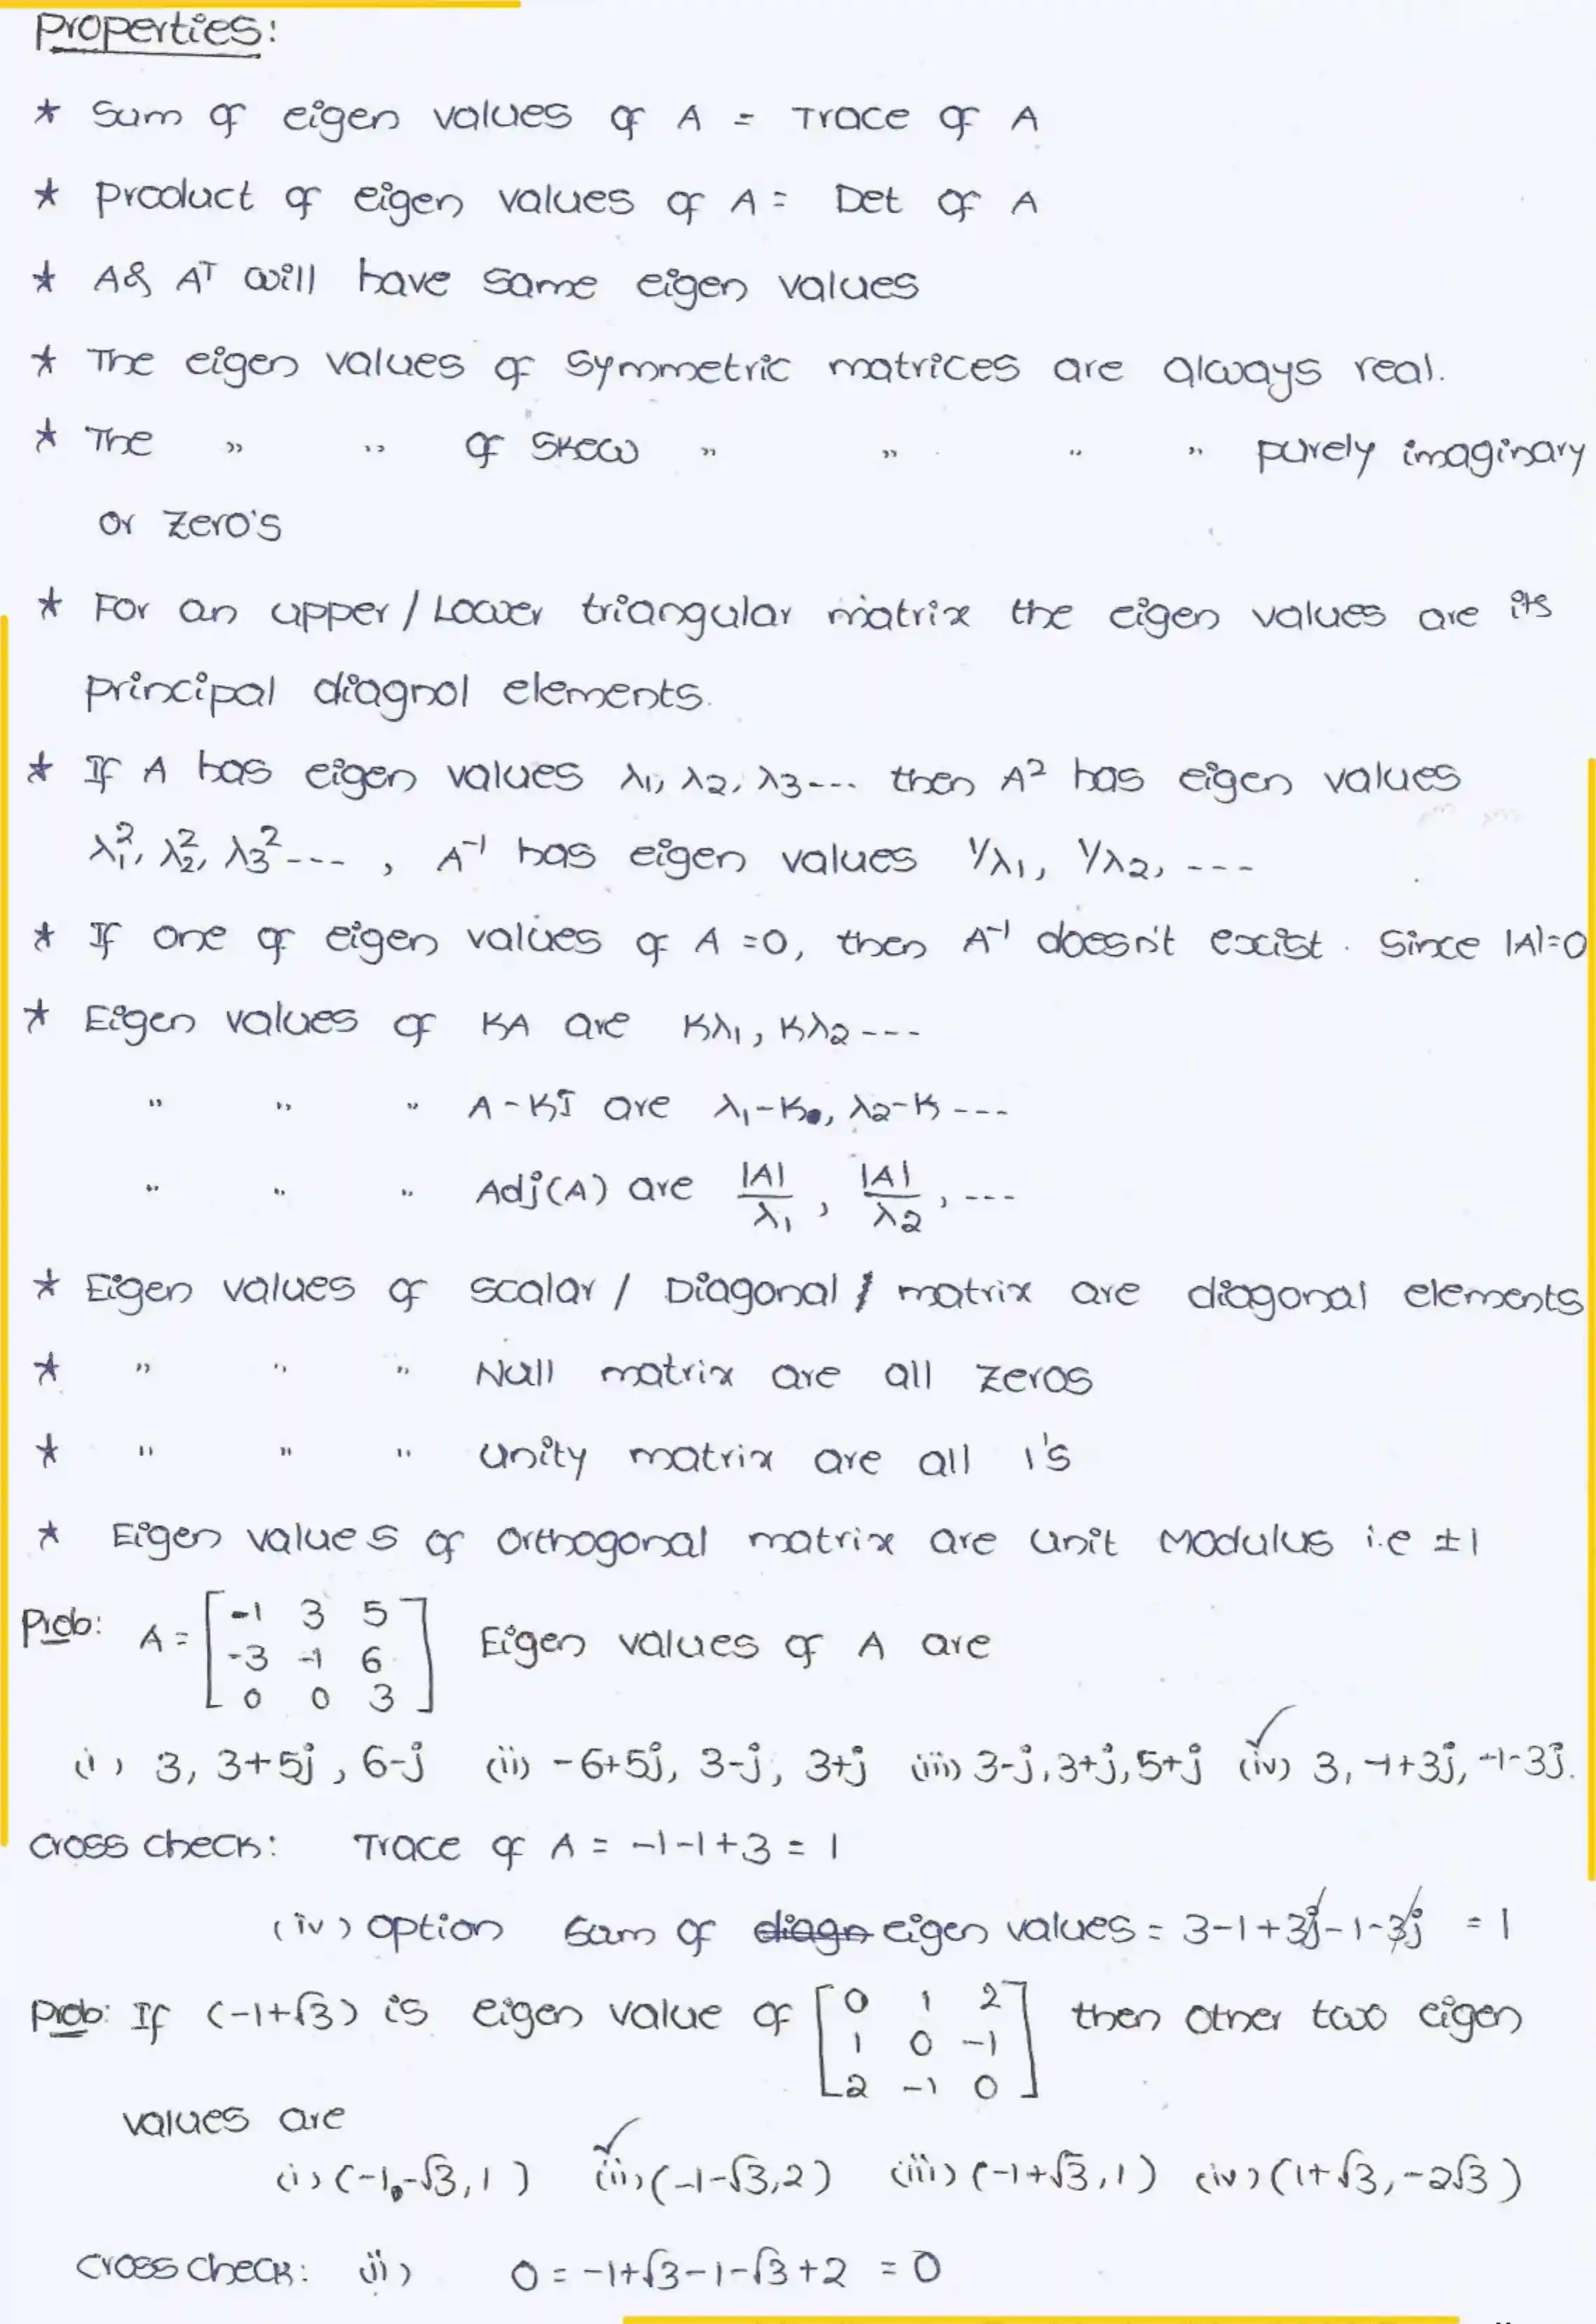 Properties:
* Sum of eigen values of A = Trace of A
* Product of eigen values of A = Det of A
* A & Aᵀ will have same eigen values
* The eigen values of symmetric matrices are always real.
* The " " of skew " " " " purely imaginary
or zero's
* For an upper / Lower triangular matrix the eigen values are its
principal diagnol elements.
* If A has eigen values λ1, λ2, λ3 --- then A² has eigen values
λ1², λ2², λ3² --- , A⁻¹ has eigen values 1/λ1, 1/λ2, ---
* If one of eigen values of A = 0, then A⁻¹ doesn't exist. Since |A|=0
* Eigen values of KA are Kλ1, Kλ2 ---
" " " A - KI are λ1-K, λ2-K ---
" " " Adj(A) are |A|/λ1, |A|/λ2, ---
* Eigen values of scalar / Diagonal / matrix are diagonal elements
* " " " Null matrix are all zeros
* " " " Unity matrix are all 1's
* Eigen values of orthogonal matrix are unit Modulus i.e ±1
Prob: A = [-1 3 5
-3 -1 6
0 0 3] Eigen values of A are
(i) 3, 3+5j, 6-j (ii) -6+5j, 3-j, 3+j (iii) 3-j, 3+j, 5+j (iv) 3, -1+3j, -1-3j.
cross check: Trace of A = -1-1+3 = 1
(iv) option Sum of diagn eigen values = 3-1+3j-1-3j = 1
Prob: If (-1+√3) is eigen value of [0 1 2
1 0 -1
2 -1 0] then other two eigen
values are
(i) (-1,-√3, 1) (ii) (-1-√3, 2) (iii) (-1+√3, 1) (iv) (1+√3, -2√3)
cross check: (ii) 0 = -1+√3-1-√3+2 = 0